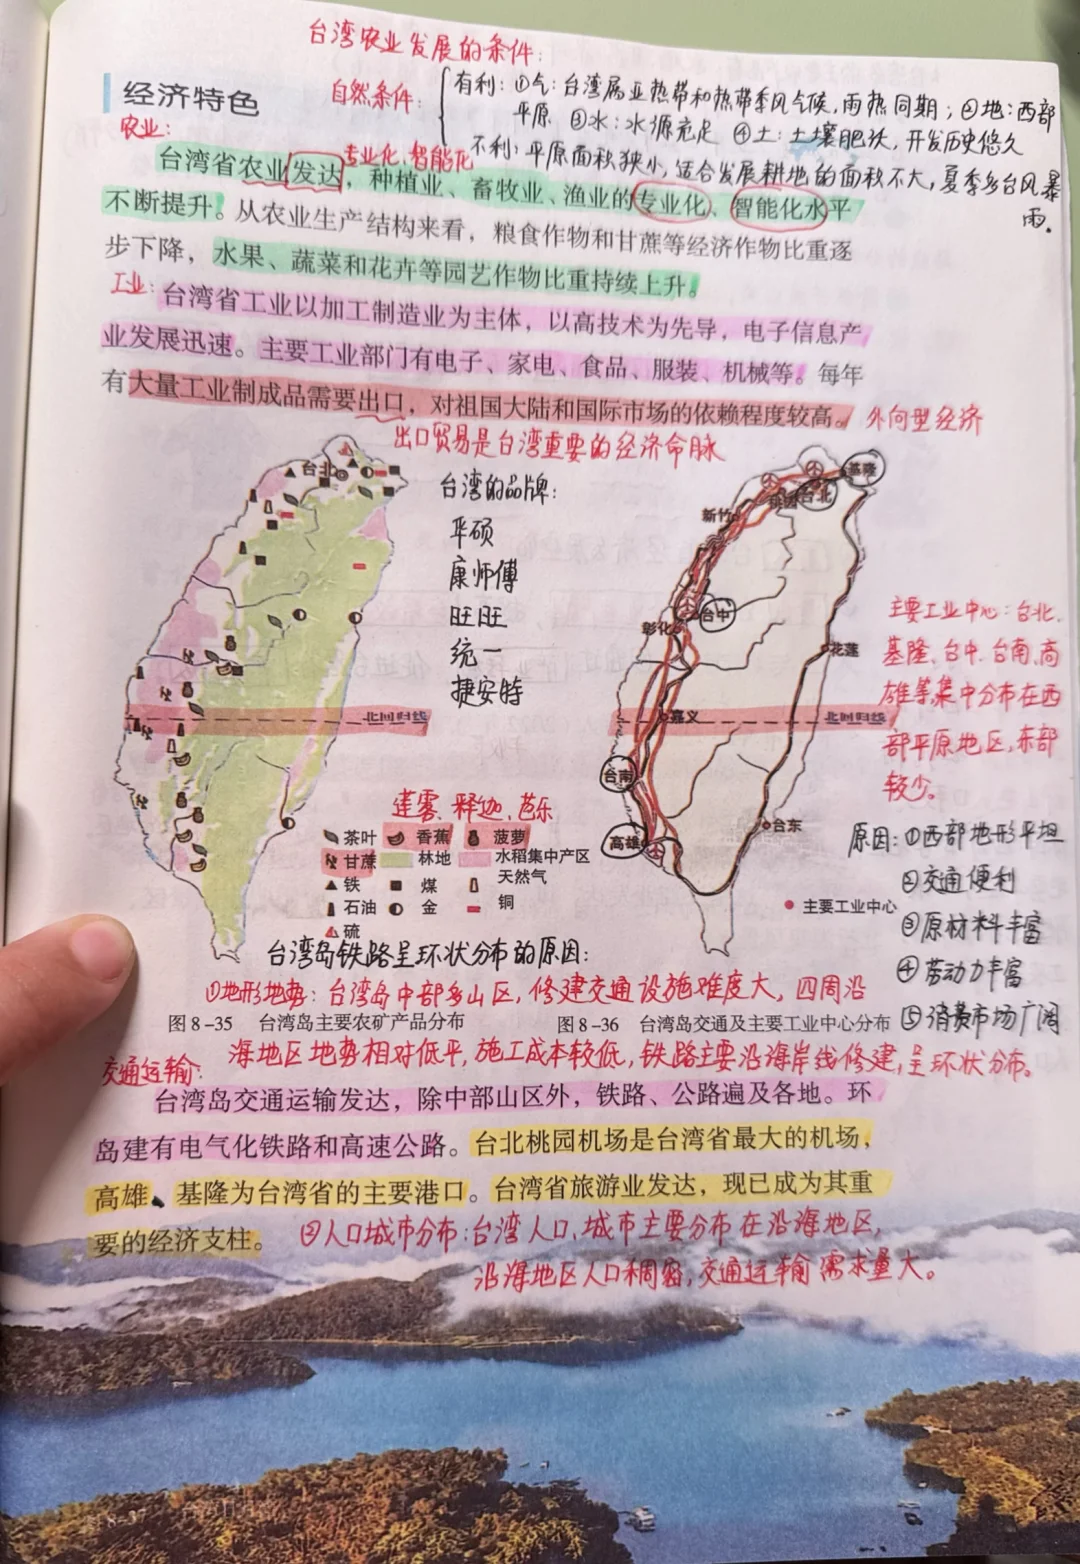 台湾农业发展的条件：
经济特色
自然条件：
有利：①气：台湾属亚热带和热带季风气候，雨热同期；②地：西部
平原 ③水：水源充足 ④土：土壤肥沃，开发历史悠久
不利：平原面积狭小，适合发展耕地的面积不大，夏季多台风暴
雨。
农业：
专业化、智能化
台湾省农业发达，种植业、畜牧业、渔业的专业化、智能化水平
不断提升。从农业生产结构来看，粮食作物和甘蔗等经济作物比重逐
步下降，水果、蔬菜和花卉等园艺作物比重持续上升。
工业：
台湾省工业以加工制造业为主体，以高技术为先导，电子信息产
业发展迅速。主要工业部门有电子、家电、食品、服装、机械等。每年
有大量工业制成品需要出口，对祖国大陆和国际市场的依赖程度较高。
外向型经济
出口贸易是台湾重要的经济命脉
台湾的品牌：
平硕
康师傅
旺旺
统一
捷安特
台北
北回归线
莲雾、释迦、芭乐
茶叶 香蕉 菠萝
甘蔗 林地 水稻集中产区
铁 煤 天然气
石油 金 铜
硫
基隆
台北
桃园
新竹
台中
彰化
花莲
嘉义
北回归线
台南
高雄
台东
主要工业中心
主要工业中心：台北、
基隆、台中、台南、高
雄等集中分布在西
部平原地区，东部
较少。
原因：①西部地形平坦
②交通便利
③原材料丰富
④劳动力丰富
⑤消费市场广阔
台湾岛铁路呈环状分布的原因：
①地形地势：台湾岛中部多山区，修建交通设施难度大，四周沿
图8-35 台湾岛主要农矿产品分布
图8-36 台湾岛交通及主要工业中心分布
海地区地势相对低平，施工成本较低，铁路主要沿海岸线修建，呈环状分布。
交通运输：
台湾岛交通运输发达，除中部山区外，铁路、公路遍及各地。环
岛建有电气化铁路和高速公路。台北桃园机场是台湾省最大的机场，
高雄、基隆为台湾省的主要港口。台湾省旅游业发达，现已成为其重
要的经济支柱。
②人口城市分布：台湾人口、城市主要分布在沿海地区，
沿海地区人口稠密，交通运输需求量大。
图8-37